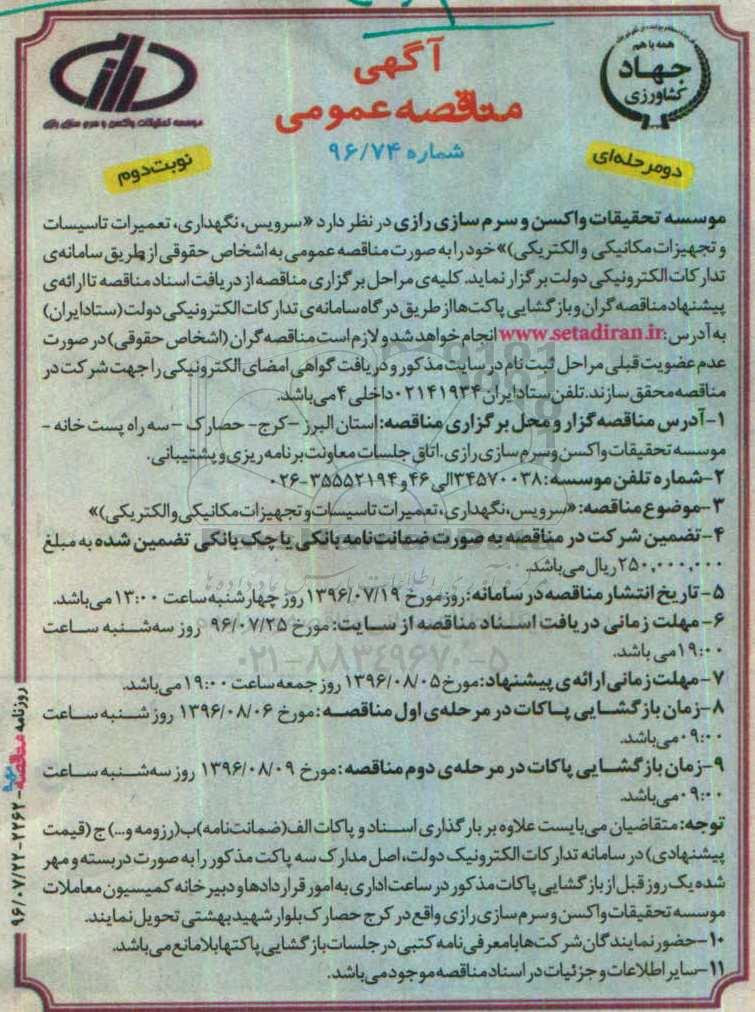 همه با هم
جهاد
کشاورزی
موسسه تحقیقات واکسن و سرم سازی رازی
آگهی
مناقصه عمومی
شماره ۹۶/۷۴
دومرحله‌ای
نوبت دوم
موسسه تحقیقات واکسن و سرم سازی رازی در نظر دارد «سرویس، نگهداری، تعمیرات تاسیسات
و تجهیزات مکانیکی و الکتریکی)» خود را به صورت مناقصه عمومی به اشخاص حقوقی از طریق سامانه‌ی
تدارکات الکترونیکی دولت برگزار نماید. کلیه‌ی مراحل برگزاری مناقصه از دریافت اسناد مناقصه تا ارائه‌ی
پیشنهاد مناقصه گران و بازگشایی پاکت‌ها از طریق درگاه سامانه‌ی تدارکات الکترونیکی دولت (ستاد ایران)
به آدرس: www.setadiran.ir انجام خواهد شد و لازم است مناقصه گران (اشخاص حقوقی) در صورت
عدم عضویت قبلی مراحل ثبت نام در سایت مذکور و دریافت گواهی امضای الکترونیکی را جهت شرکت در
مناقصه محقق سازند. تلفن ستاد ایران ۰۲۱۴۱۹۳۴ داخلی ۴ می‌باشد.
۱- آدرس مناقصه گزار و محل برگزاری مناقصه: استان البرز – کرج – حصارک – سه راه پست خانه –
موسسه تحقیقات واکسن و سرم سازی رازی. اتاق جلسات معاونت برنامه ریزی و پشتیبانی.
۲- شماره تلفن موسسه: ۳۴۵۷۰۰۳۸ الی ۴۶ و ۳۵۵۵۲۱۹۴-۰۲۶
۳- موضوع مناقصه: «سرویس، نگهداری، تعمیرات تاسیسات و تجهیزات مکانیکی و الکتریکی)»
۴- تضمین شرکت در مناقصه به صورت ضمانت‌نامه بانکی یا چک بانکی تضمین شده به مبلغ
۲۵۰,۰۰۰,۰۰۰ ریال می‌باشد.
۵- تاریخ انتشار مناقصه در سامانه: روز مورخ ۱۳۹۶/۰۷/۱۹ روز چهارشنبه ساعت ۱۳:۰۰ می‌باشد.
۶- مهلت زمانی دریافت اسناد مناقصه از سایت: مورخ ۹۶/۰۷/۲۵ روز سه‌شنبه ساعت
۱۹:۰۰ می باشد.
۷- مهلت زمانی ارائه‌ی پیشنهاد: مورخ ۱۳۹۶/۰۸/۰۵ روز جمعه ساعت ۱۹:۰۰ می‌باشد.
۸- زمان بازگشایی پاکات در مرحله‌ی اول مناقصه: مورخ ۱۳۹۶/۰۸/۰۶ روز شنبه ساعت
۰۹:۰۰ می‌باشد.
۹- زمان بازگشایی پاکات در مرحله‌ی دوم مناقصه: مورخ ۱۳۹۶/۰۸/۰۹ روز سه‌شنبه ساعت
۰۹:۰۰ می‌باشد.
توجه: متقاضیان می‌بایست علاوه بر بارگذاری اسناد و پاکات الف (ضمانت‌نامه) ب (رزومه و...) ج (قیمت
پیشنهادی) در سامانه تدارکات الکترونیک دولت، اصل مدارک سه پاکت مذکور را به صورت دربسته و مهر
شده یک روز قبل از بازگشایی پاکات مذکور در ساعت اداری به امور قراردادها و دبیرخانه کمیسیون معاملات
موسسه تحقیقات واکسن و سرم سازی رازی واقع در کرج حصارک بلوار شهید بهشتی تحویل نمایند.
۱۰- حضور نمایندگان شرکت‌ها با معرفی نامه کتبی در جلسات بازگشایی پاکتها بلامانع می‌باشد.
۱۱- سایر اطلاعات و جزئیات در اسناد مناقصه موجود می‌باشد.
روزنامه مناقصه مزایده - ۲۲۶۲ - ۹۶/۰۷/۲۲
۰۲۱-۸۸۳۴۹۶۷۰-۵